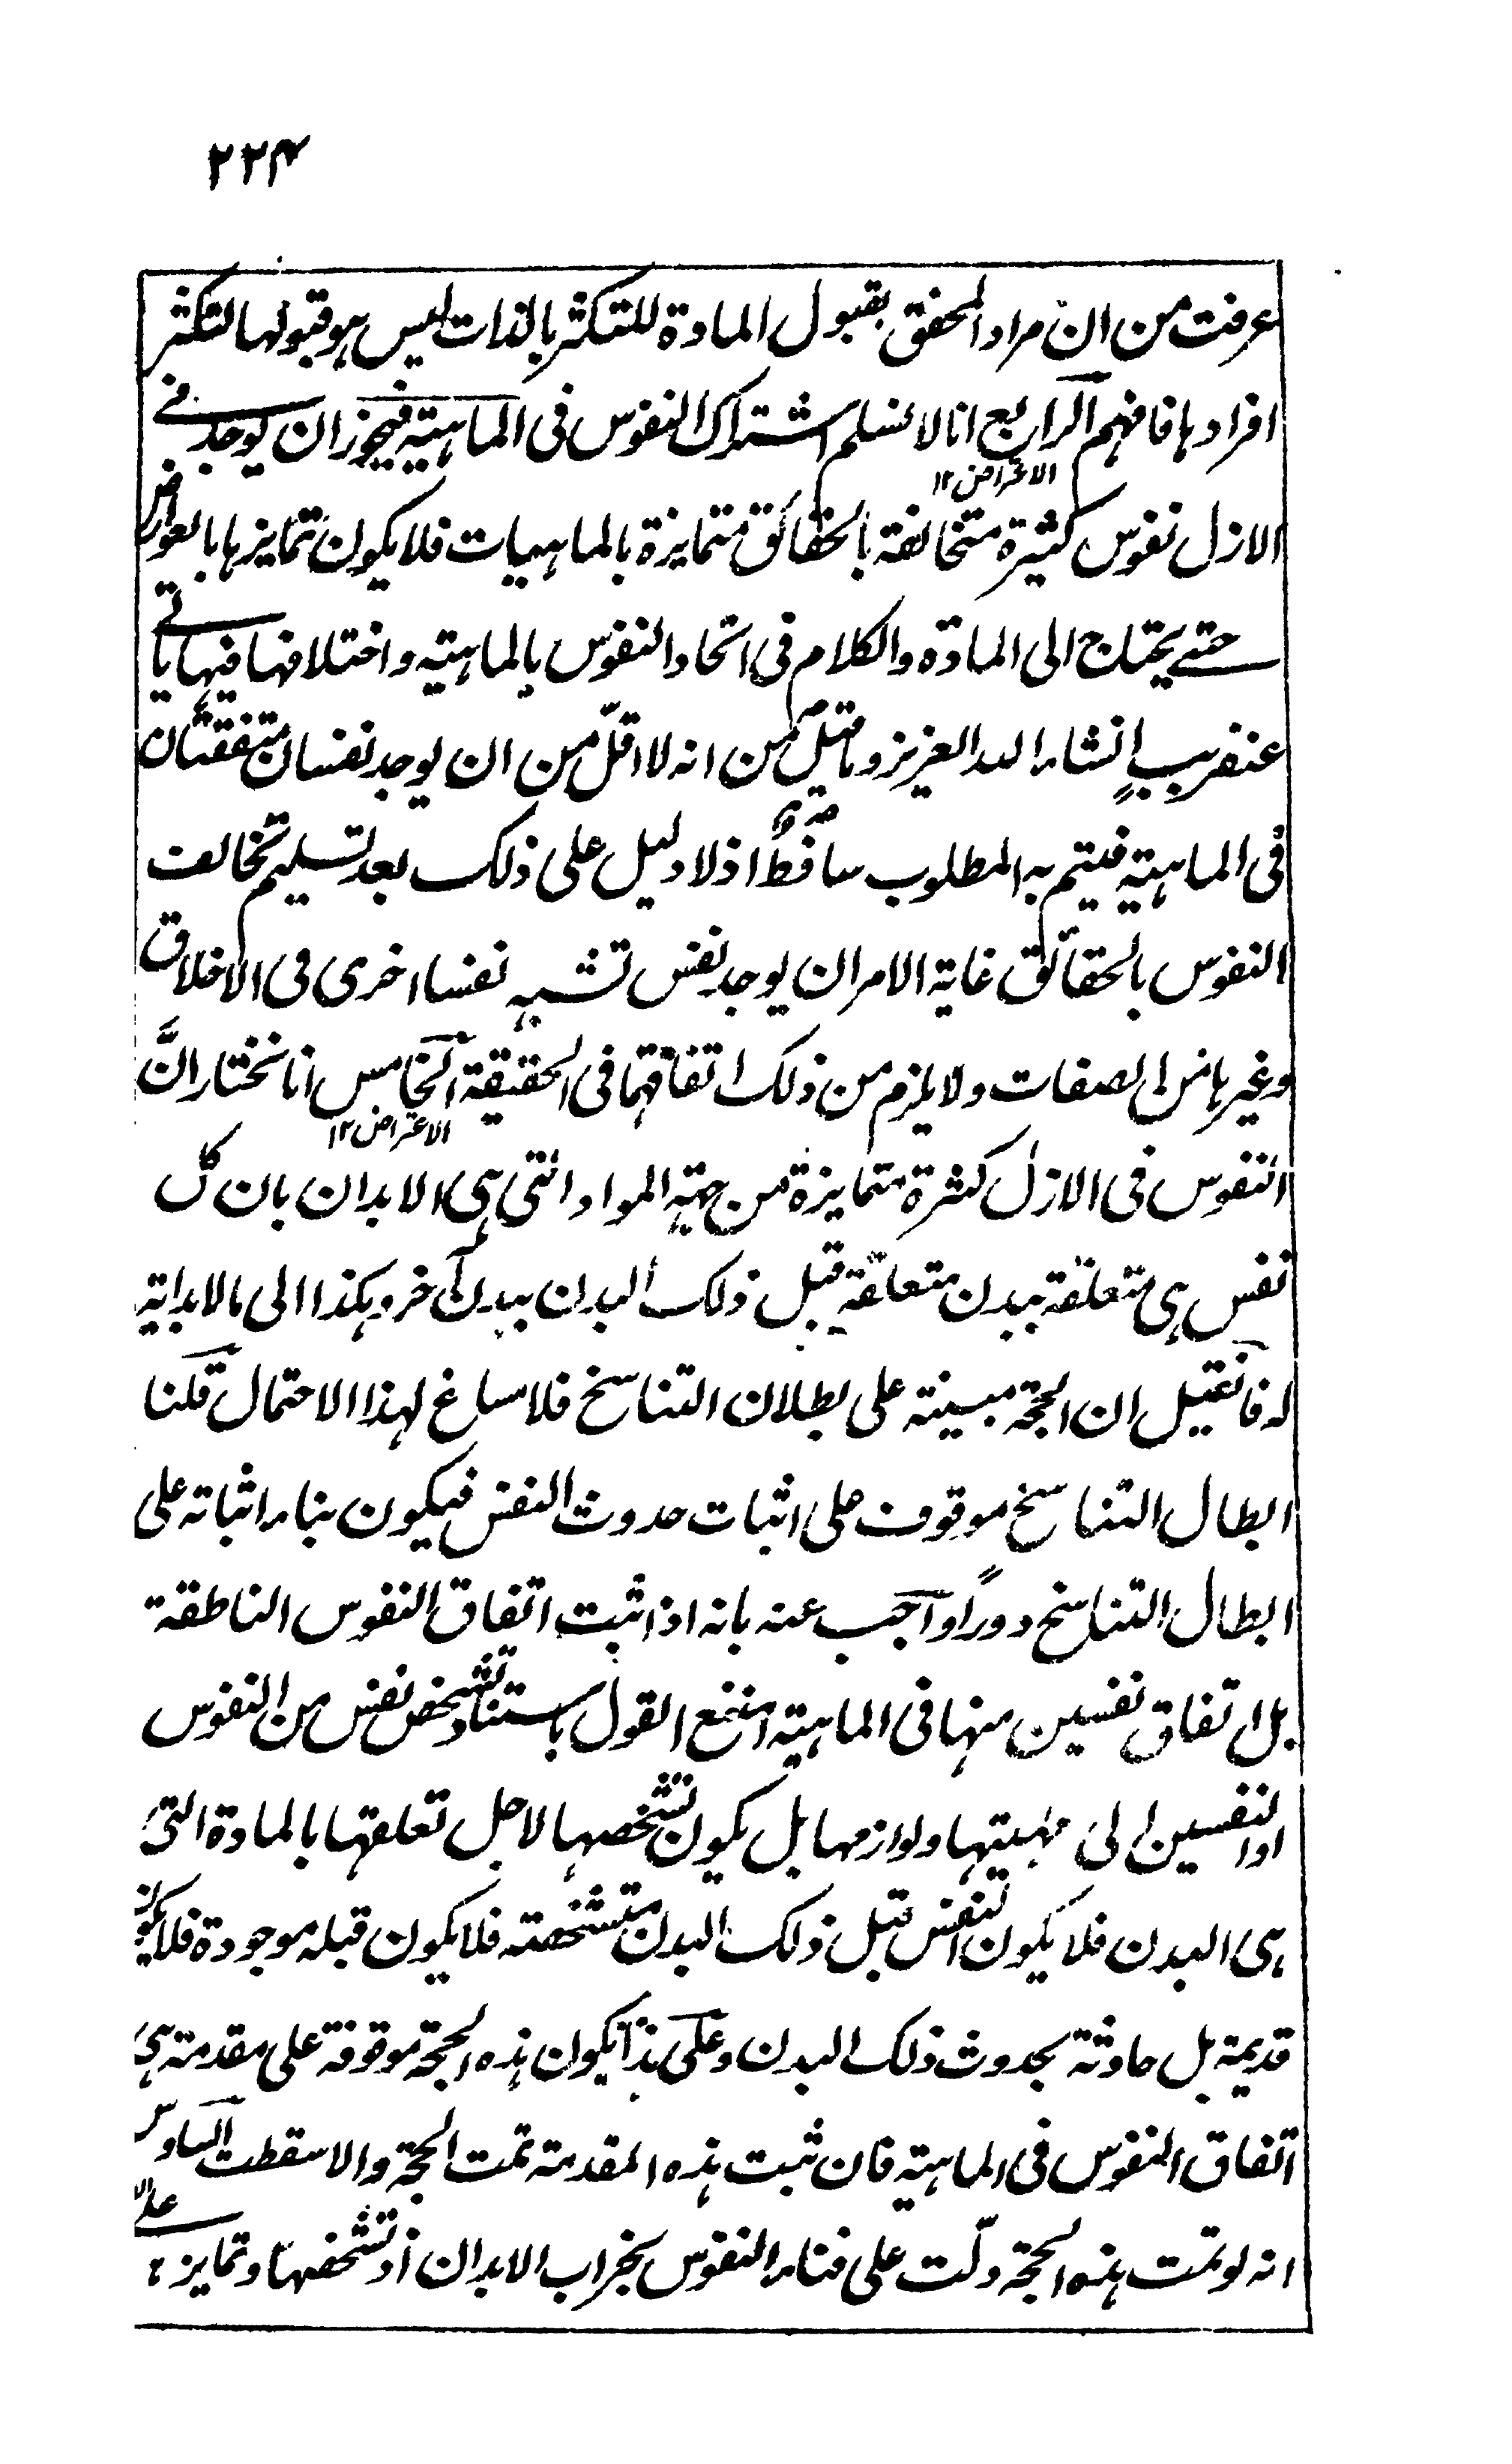 ٢٢٤
عرفت من ان مراد المحقق بقبول المادة للتكثر بالذات ليس هو قبولها لتكثر
افرادها فافهم الرابع انا لا نسلم اشتراك النفوس فى الماهية فيجوز ان يوجد فے
الاعتراض ١٢
الازل نفوس كثيرة متخالفة بالحقائق متمايزة بالماهيات فلا يكون تمايزها بالعوارض
حتے يحتاج الى المادّة والكلام فى اتحاد النفوس بالماهية واختلافها فيها ياتے
عنقريب انشاء الله العزيز وما قيل من انه لا اقلّ من ان يوجد نفسان متفقتان
فى الماهية فيتم به المطلوب ساقط اذ لا دليل على ذلك بعد تسليم تخالف
النفوس بالحقائق غاية الامر ان يوجد نفس تشبه نفسا اخرى فى الاخلاق
وغيرها من الصفات ولا يلزم من ذلك اتفاقهما فى الحقيقة الخامس انا نختار انَّ
الاعتراض ١٢
النفوس فى الازل كثرة متمايزة من جهة المواد التى هى الابدان بان كل
نفس هى متعلقة ببدن متعلقة قبل ذلك البدن ببدن آخر وهكذا الى ما لا بداية
له فان قيل ان الحجة مبينة على بطلان التناسخ فلا مساغ لهذا الاحتمال قلنا
ابطال التناسخ موقوف على اثبات حدوث النفس فيكون بناء اثباته على
ابطال التناسخ دوراً واجيب عنه بانه اذا ثبت اتفاق النفوس الناطقة
بل اتفاق نفسين منها فى الماهية امتنع القول باستناد تشخص نفس من النفوس
او النفسين الى مهيتها ولوازمها بل يكون تشخصها لاجل تعلقها بالمادة التى
هى البدن فلا يكون النفس قبل ذلك البدن متشخصة فلا يكون قبله موجودة فلا يكون
قديمة بل حادثة بحدوث ذلك البدن وعلى هذا يكون هذه الحجة موقوفة على مقدمة هى
اتفاق النفوس فى الماهية فان ثبت هذه المقدمة تمت الحجة والا سقطت السادس
انه لو تمت هذه الحجة دلّت على فناء النفوس بخراب الابدان اذ تشخصها وتمايزها علے